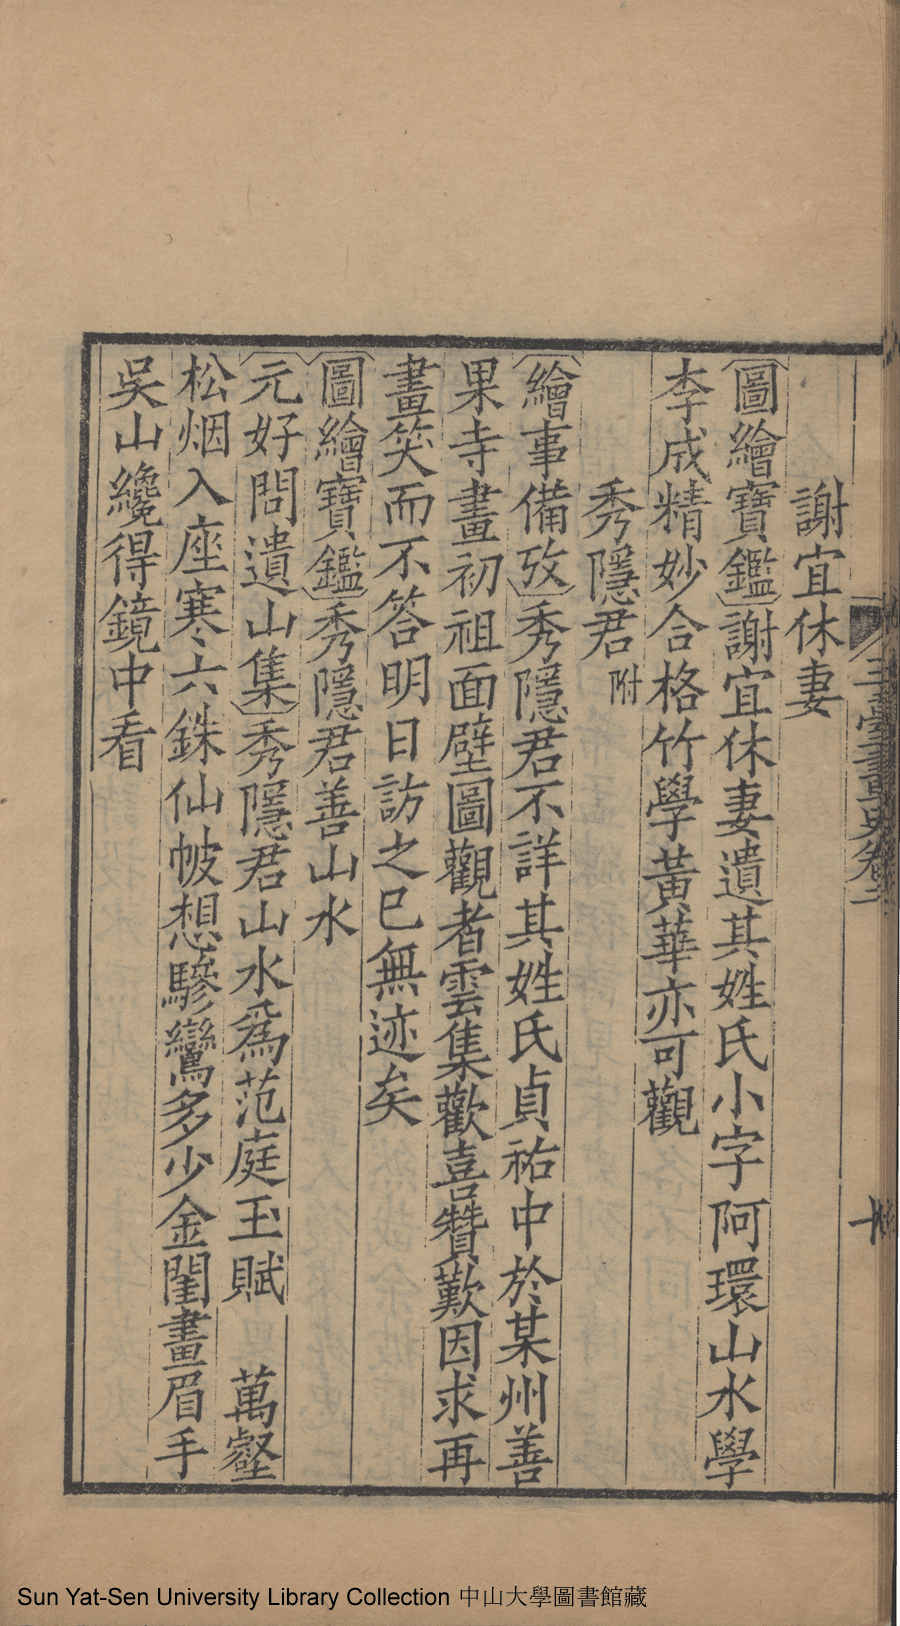 謝宜休妻
〔圖繪寶鑑〕謝宜休妻遺其姓氏小字阿環山水學
李成精妙合格竹學黃華亦可觀
秀隱君附
〔繪事備攷〕秀隱君不詳其姓氏貞祐中於某州善
果寺畫初祖面壁圖觀者雲集歡喜贊歎因求再
畫笑而不答明日訪之已無迹矣
〔圖繪寶鑑〕秀隱君善山水
〔元好問遺山集〕秀隱君山水爲范庭玉賦　萬壑
松烟入座寒六銖仙帔想驂鸞多少金閨畫眉手
吳山纔得鏡中看
Sun Yat-Sen University Library Collection 中山大學圖書館藏